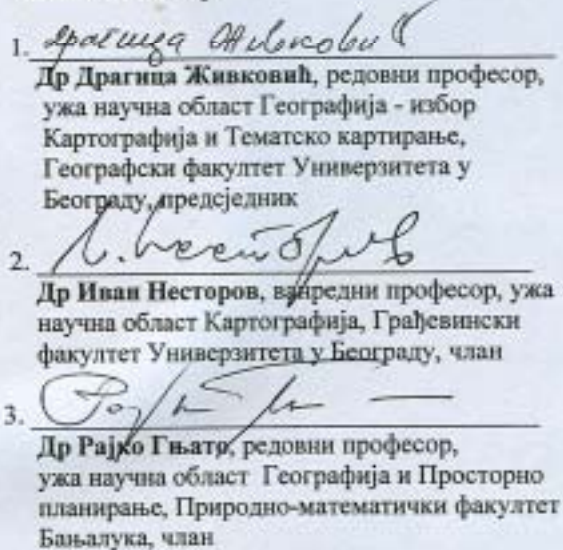 1. Драгица Живковић
Др Драгица Живковић, редовни професор,
ужа научна област Географија - избор
Картографија и Тематско картирање,
Географски факултет Универзитета у
Београду, предсједник
2.
Др Иван Несторов, ванредни професор, ужа
научна област Картографија, Грађевински
факултет Универзитета у Београду, члан
3.
Др Рајко Гњато, редовни професор,
ужа научна област Географија и Просторно
планирање, Природно-математички факултет
Бањалука, члан